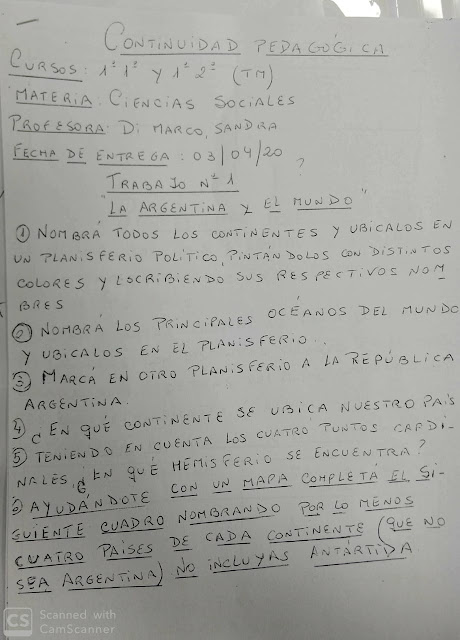 CONTINUIDAD PEDAGÓGICA
CURSOS: 1º 1º Y 1º 2º (TM)
MATERIA: CIENCIAS SOCIALES
PROFESORA: DI MARCO, SANDRA
FECHA DE ENTREGA: 03/04/20
?
TRABAJO Nº 1
"LA ARGENTINA Y EL MUNDO"
① NOMBRÁ TODOS LOS CONTINENTES Y UBICALOS EN
UN PLANISFERIO POLÍTICO, PINTÁNDOLOS CON DISTINTOS
COLORES Y ESCRIBIENDO SUS RESPECTIVOS NOM
BRES
② NOMBRÁ LOS PRINCIPALES OCÉANOS DEL MUNDO
Y UBICALOS EN EL PLANISFERIO..
③ MARCÁ EN OTRO PLANISFERIO A LA REPÚBLICA
ARGENTINA.
④ ¿EN QUÉ CONTINENTE SE UBICA NUESTRO PAIS
⑤ TENIENDO EN CUENTA LOS CUATRO PUNTOS CARDI-
NALES, ¿EN QUÉ HEMISFERIO SE ENCUENTRA?
⑥ AYUDÁNDOTE CON UN MAPA COMPLETÁ EL SI-
GUIENTE CUADRO NOMBRANDO POR LO MENOS
CUATRO PAISES DE CADA CONTINENTE (QUE NO
SEA ARGENTINA) NO INCLUYAS ANTÁRTIDA
CS Scanned with
CamScanner